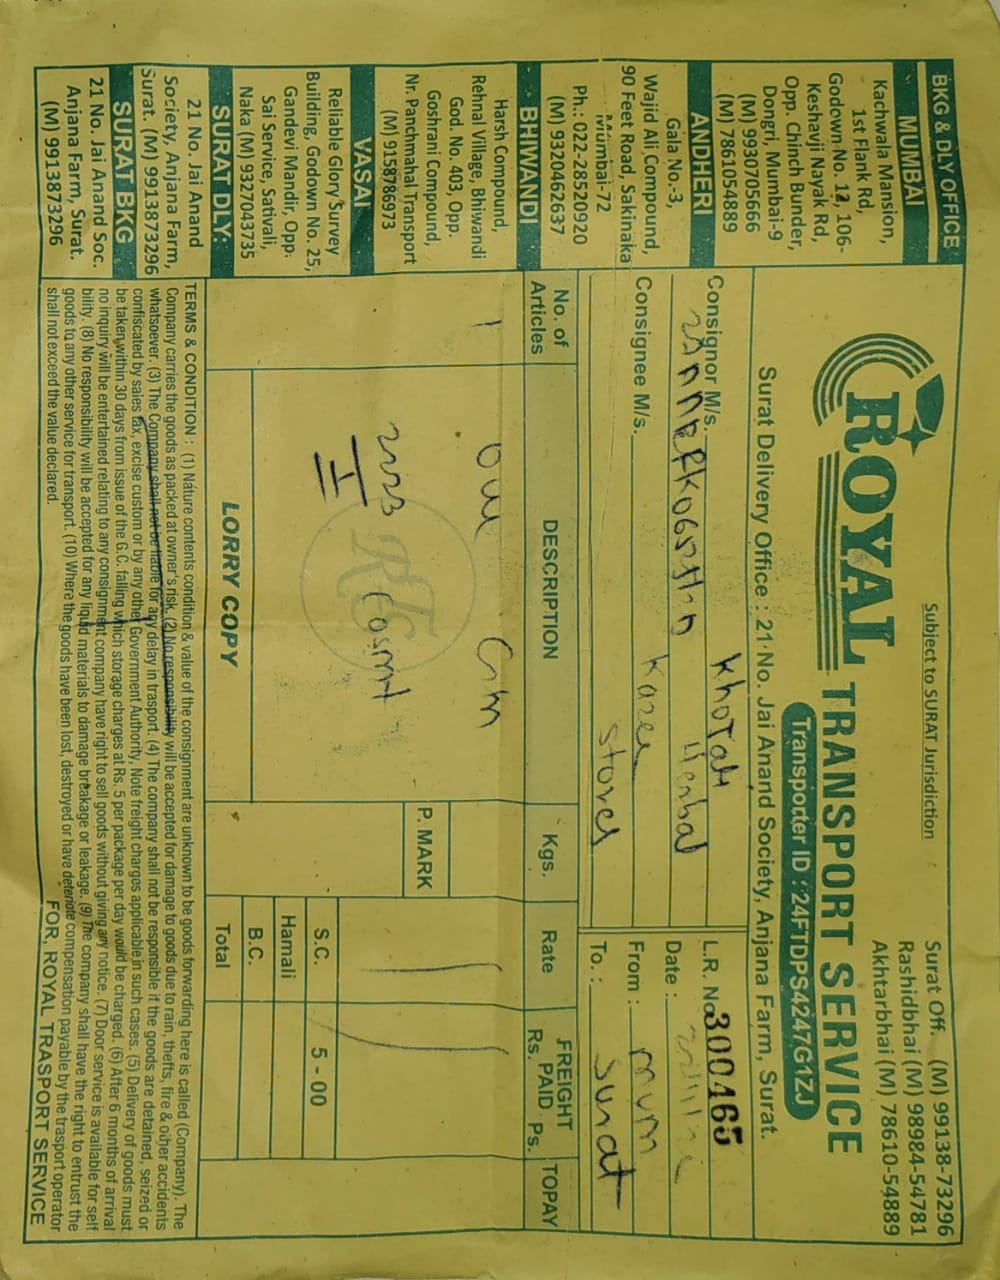 Subject to SURAT Jurisdiction
Surat Off. (M) 99138-73296
Rashidbhai (M) 98984-54781
Akhtarbhai (M) 78610-54889
ROYAL TRANSPORT SERVICE
Transporter ID : 24FTDPS4247G1ZJ
Surat Delivery Office : 21 No. Jai Anand Society, Anjana Farm, Surat.
BKG & DLY OFFICE
MUMBAI
Kachwala Mansion,
1st Flank Rd,
Godown No. 12, 106-
Keshavji Nayak Rd,
Opp. Chinch Bunder,
Dongri, Mumbai-9
(M) 9930705666
(M) 7861054889
ANDHERI
Gala No.-3,
Wajid Ali Compound,
90 Feet Road, Sakinaka
Mumbai-72
Ph.: 022-28520920
(M) 9320462637
BHIWANDI
Harsh Compound,
Rehnal Village, Bhiwandi
God. No. 403, Opp.
Goshrani Compound,
Nr. Panchmahal Transport
(M) 9158786973
VASAI
Reliable Glory Survey
Building, Godown No. 25,
Gandevi Mandir, Opp.
Sai Service, Sativali,
Naka (M) 9327043735
SURAT DLY:
21 No. Jai Anand
Society, Anjana Farm,
Surat. (M) 9913873296
SURAT BKG
21 No. Jai Anand Soc.
Anjana Farm, Surat.
(M) 9913873296
Consignor M/s. Khotal
Consignee M/s. Kazen
Stores
L.R. No. 300465
Date :
From : mum
To. : Surat
No. of Articles
DESCRIPTION
Kgs.
Rate
FREIGHT
Rs. PAID Ps.
TOPAY
1
one
P. MARK
S.C. 5 - 00
Hamali
B.C.
Total
LORRY COPY
TERMS & CONDITION : (1) Nature contents condition & value of the consignment are unknown to be goods forwarding here is called (Company). The
Company carries the goods as packed at owner's risk. (2) No responsibility will be accepted for damage to goods due to rain, thefts, fire & other accidents
whatsoever. (3) The Company shall not be liable for any delay in trasport. (4) The company shall not be responsible if the goods are detained, seized or
confiscated by sales tax, excise custom or by any other Government Authority, Note freight charges applicable in such cases. (5) Delivery of goods must
be taken within 30 days from issue of the G.C. falling which storage charges at Rs. 5 per package per day would be charged. (6) After 6 months of arrival
no inquiry will be entertained relating to any consignment company have right to sell goods without giving any notice. (7) Door service is available for self
bility. (8) No responsibility will be accepted for any liquid materials to damage breakage or leakage. (9) The company shall have the right to entrust the
goods to any other service for transport. (10) Where the goods have been lost, destroyed or have deteriote compensation payable by the trasport operator
shall not exceed the value declared.
FOR, ROYAL TRASPORT SERVICE